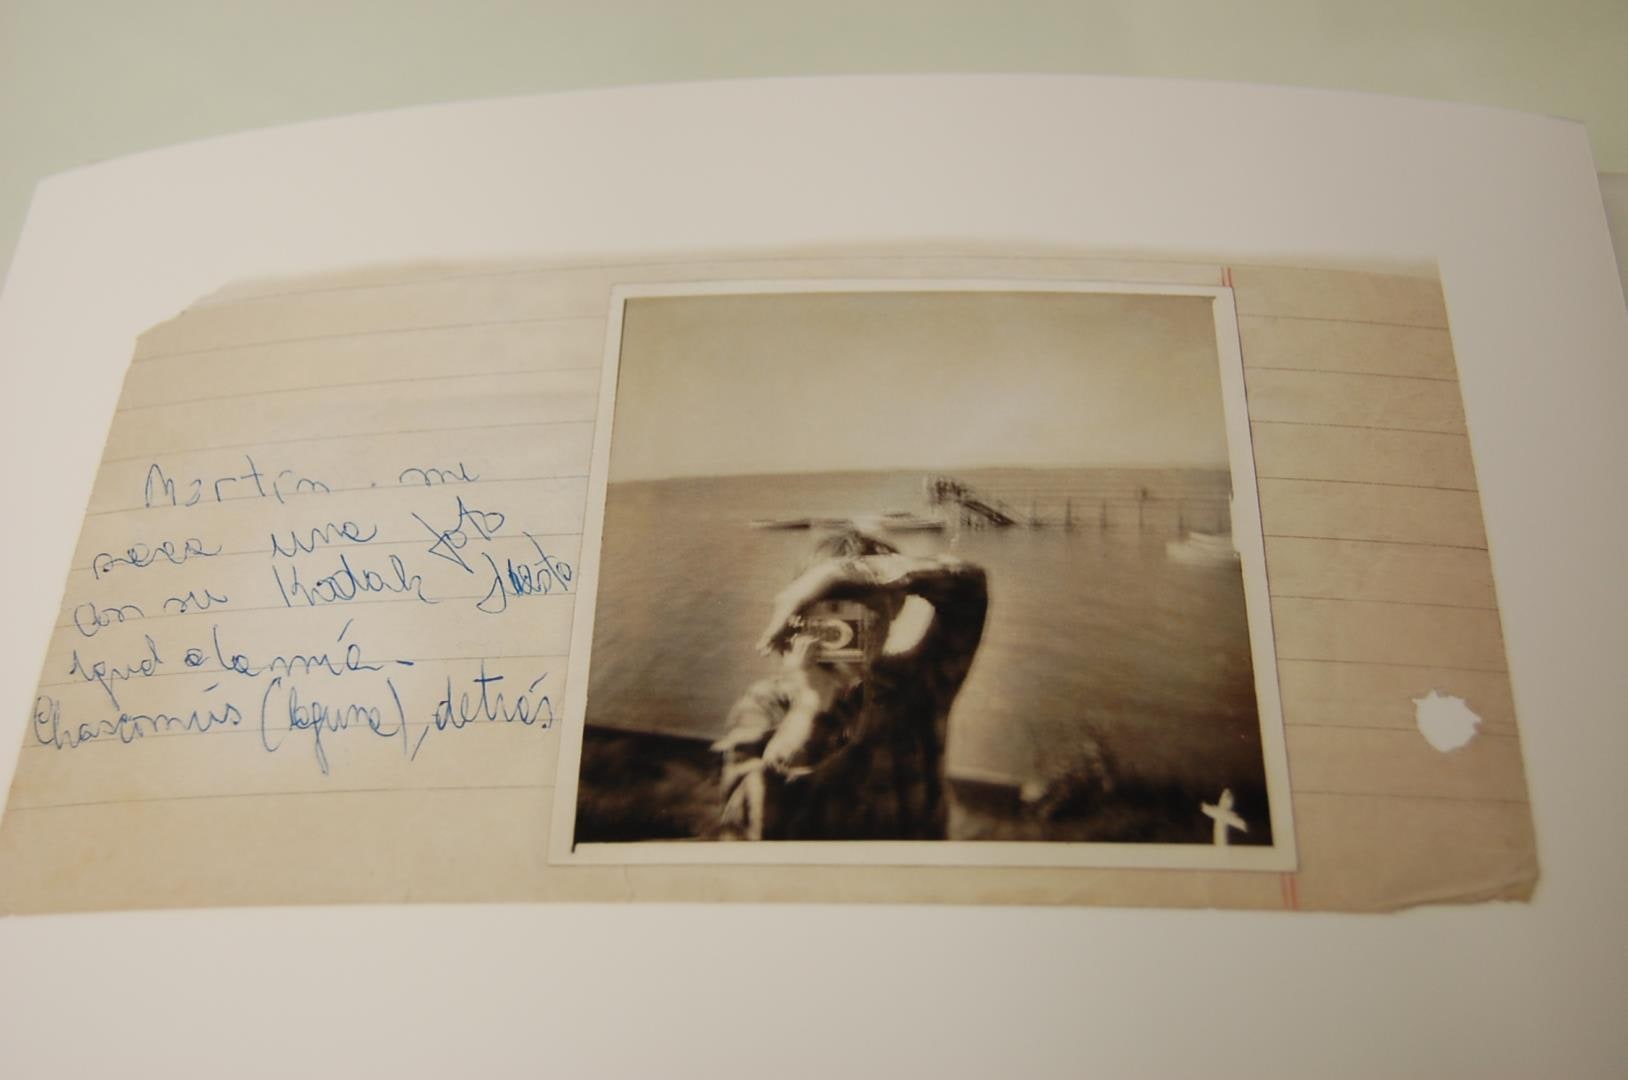 Martín me
saca una foto
con su Kodak justo
igual a la mía -
Chascomús (laguna), detrás